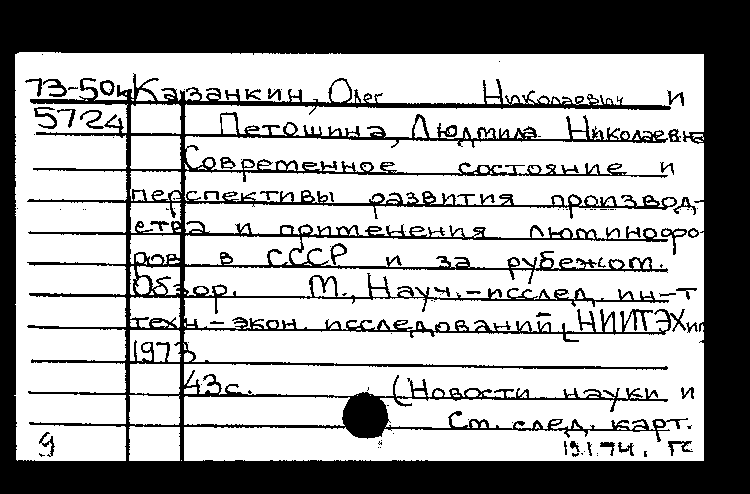 73-50к Казанкин, Олег Николаевич и
5724 Петошина, Людмила Николаевна
Современное состояние и
перспективы развития производ-
ства и применения люминофо-
ров в СССР и за рубежом.
Обзор. М., Науч.-исслед. ин.-т
техн.-экон. исследований, [НИИТЭХим
1973.
43с. (Новости науки и
См. след. карт.
9 19.1.74. ГС